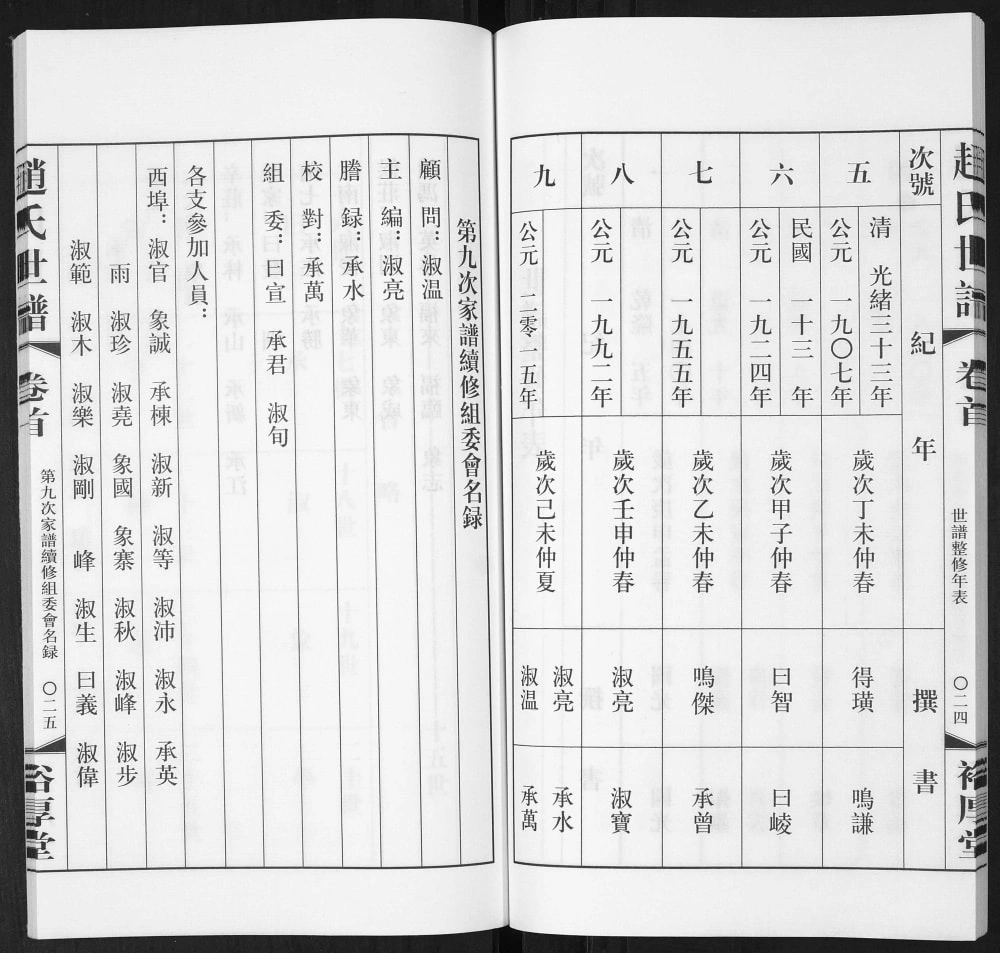 趙氏世譜 卷首 世譜整修年表 〇二四 裕厚堂
次號 紀年 撰書
五
清 光緒三十三年
公元 一九〇七年
歲次丁未仲春
得璜 鳴謙
六
民國 一十三年
公元 一九二四年
歲次甲子仲春
曰智 曰崚
七
公元 一九五五年
歲次乙未仲春
鳴傑 承曾
八
公元 一九九二年
歲次壬申仲春
淑亮 淑寶
九
公元 二零一五年
歲次己未仲夏
淑亮 承水
淑温 承萬
第九次家譜續修組委會名録
顧問：淑温
主編：淑亮
謄録：承水
校對：承萬
組委：曰宣 承君 淑旬
各支參加人員：
西埠：淑官 象誠 承棟 淑新 淑等 淑沛 淑永 承英
雨 淑珍 淑堯 象國 象寨 淑秋 淑峰 淑步
淑範 淑木 淑樂 淑剛 峰 淑生 曰義 淑偉
趙氏世譜 卷首 第九次家譜續修組委會名録 〇二五 裕厚堂